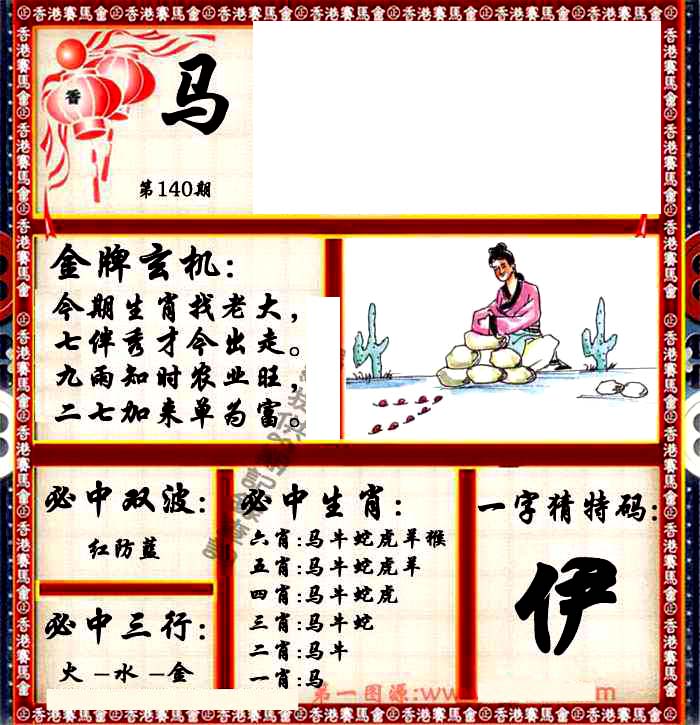 正香港賽馬會正香港賽馬會正香港賽馬會正香港賽馬會正香港賽馬會正香港賽馬會正香港賽馬會
香
马
第140期
金牌玄机:
今期生肖找老大,
七伴秀才今出走。
九雨知时农业旺,
二七加来单为富。
必中双波:
红防蓝
必中三行:
火-水-金
必中生肖:
六肖:马牛蛇虎羊猴
五肖:马牛蛇虎羊
四肖:马牛蛇虎
三肖:马牛蛇
二肖:马牛
一肖:马
一字猜特码:
伊
第一图源:www
m